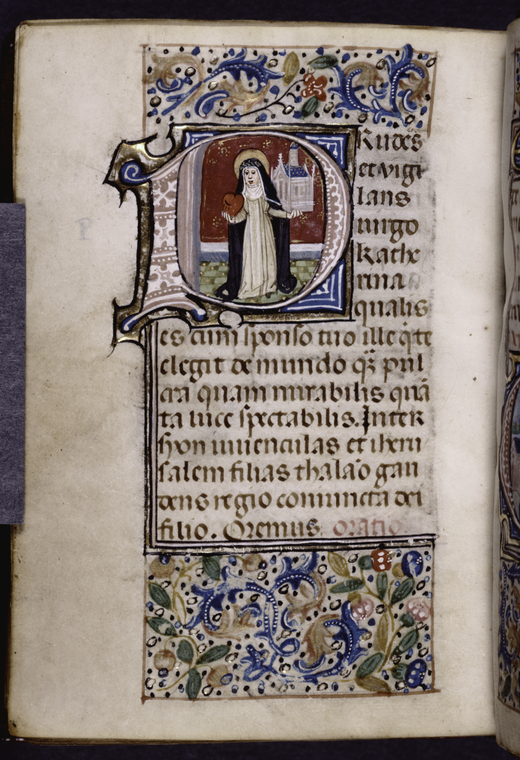 PRudēs
et vigi
lans
uirgo
kathe
rina
qualis
es cum sponso tuo ille q̄ te
elegit de mundo qz pul
cra quam mirabilis quā
ta luce spectabilis. Inter
syon iuuenculas et iheru
salem filias thalāo gau
dens regio coniuncta dei
filio. Oremus. Oratio